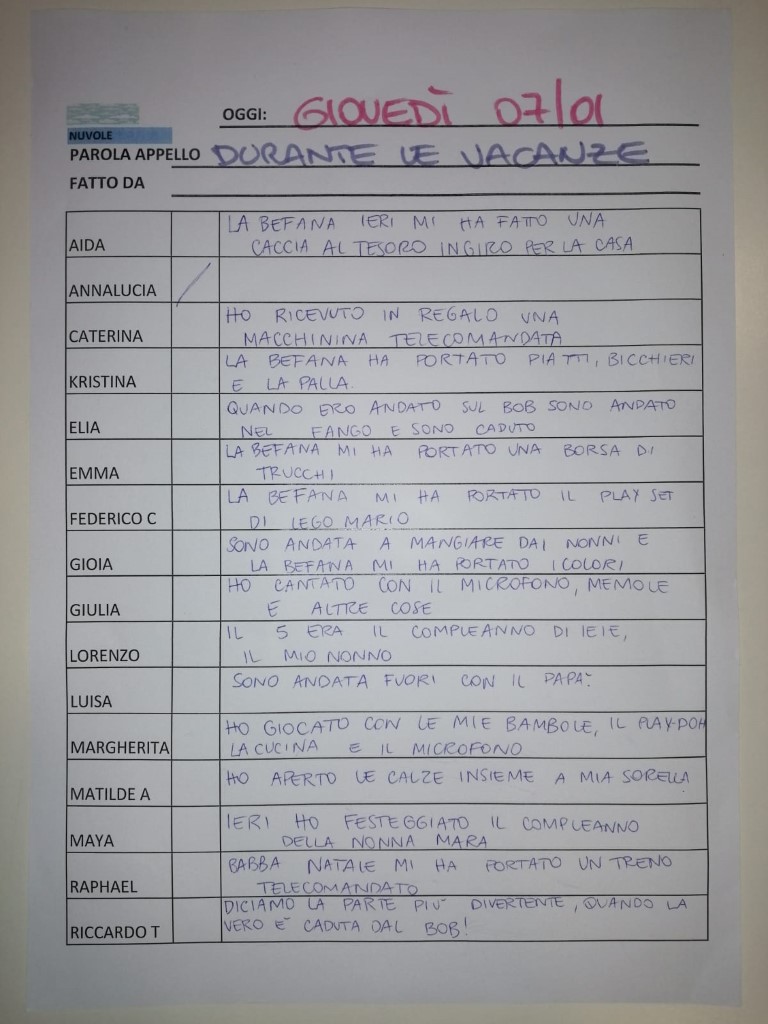 OGGI: GIOVEDÌ 07/01
NUVOLE
PAROLA APPELLO DURANTE LE VACANZE
FATTO DA
AIDA
LA BEFANA IERI MI HA FATTO UNA
CACCIA AL TESORO IN GIRO PER LA CASA
ANNALUCIA /
CATERINA
HO RICEVUTO IN REGALO UNA
MACCHININA TELECOMANDATA
KRISTINA
LA BEFANA HA PORTATO PIATTI, BICCHIERI
E LA PALLA.
ELIA
QUANDO ERO ANDATO SUL BOB SONO ANDATO
NEL FANGO E SONO CADUTO
EMMA
LA BEFANA MI HA PORTATO UNA BORSA DI
TRUCCHI
FEDERICO C
LA BEFANA MI HA PORTATO IL PLAY SET
DI LEGO MARIO
GIOIA
SONO ANDATA A MANGIARE DAI NONNI E
LA BEFANA MI HA PORTATO I COLORI
GIULIA
HO CANTATO CON IL MICROFONO, MEMOLE
E ALTRE COSE
LORENZO
IL 5 ERA IL COMPLEANNO DI IEIE,
IL MIO NONNO
LUISA
SONO ANDATA FUORI CON IL PAPA'
MARGHERITA
HO GIOCATO CON LE MIE BAMBOLE, IL PLAY-DOH
LA CUCINA E IL MICROFONO
MATILDE A
HO APERTO LE CALZE INSIEME A MIA SORELLA
MAYA
IERI HO FESTEGGIATO IL COMPLEANNO
DELLA NONNA MARA
RAPHAEL
BABBA NATALE MI HA PORTATO UN TRENO
TELECOMANDATO
RICCARDO T
DICIAMO LA PARTE PIU' DIVERTENTE, QUANDO LA
VERO E' CADUTA DAL BOB!